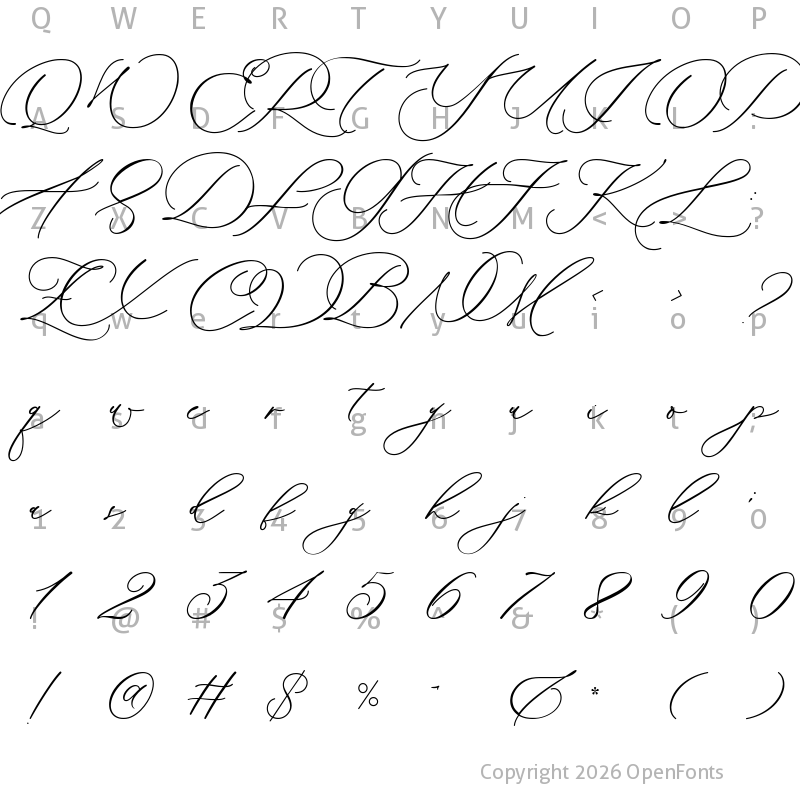 Q W E R T Y U I O P
Q W E R T Y U I O P
A S D F G H J K L :
A S D F G H J K L :
Z X C V B N M < > ?
Z X C V B N M < > ?
q w e r t y u i o p
q w e r t y u i o p
a s d f g h j k l ;
a s d f g h j k l ;
1 2 3 4 5 6 7 8 9 0
1 2 3 4 5 6 7 8 9 0
! @ # $ % ^ & * ( )
! @ # $ % ^ & * ( )
Copyright 2026 OpenFonts